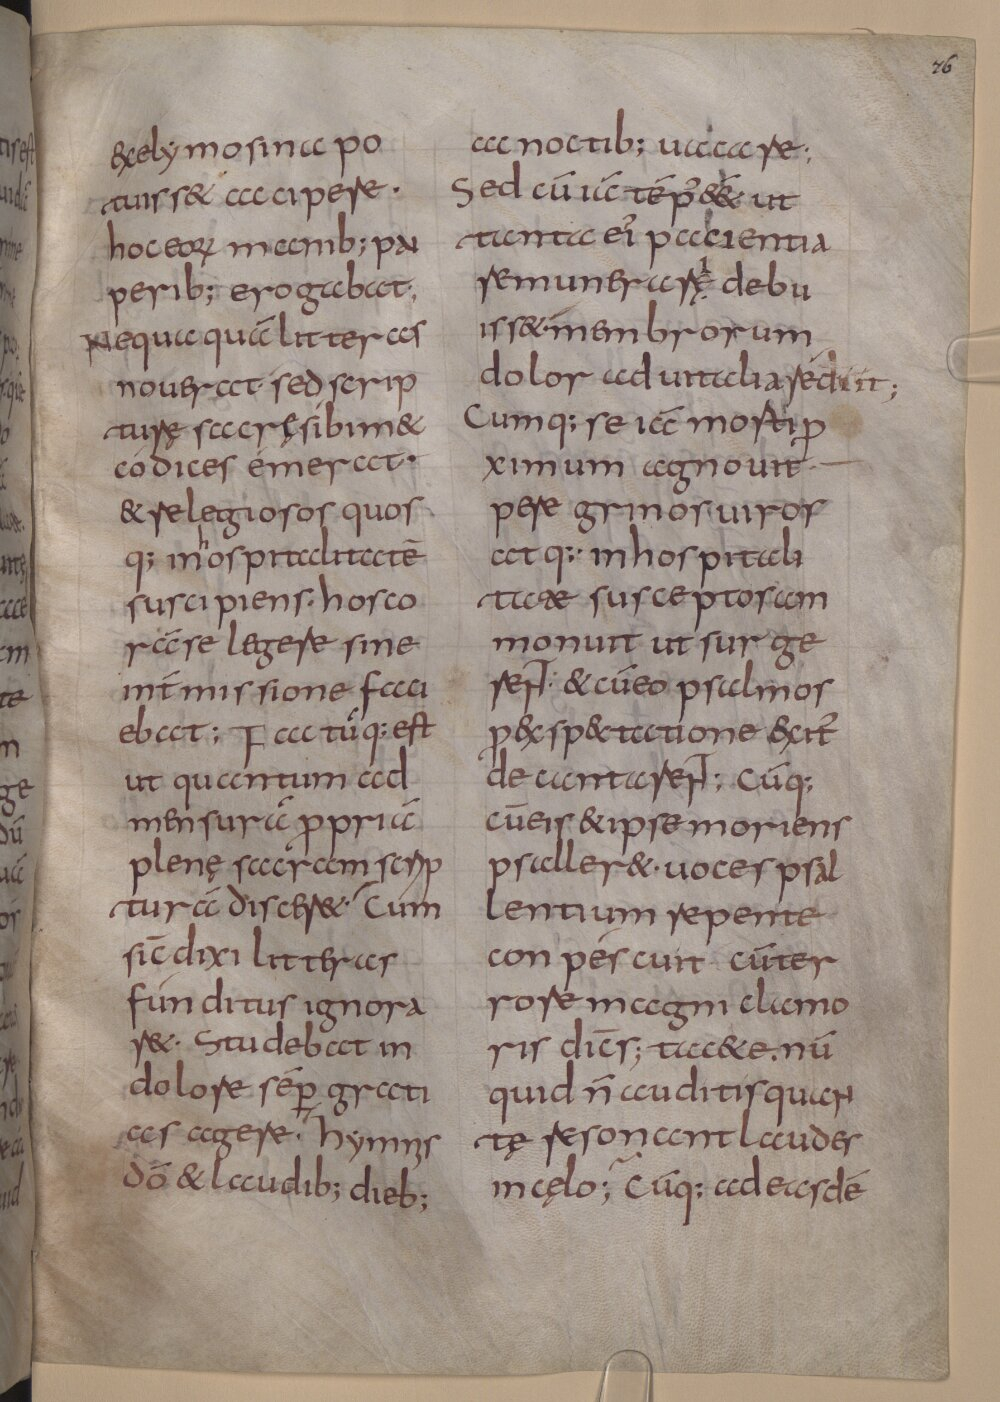 76
&xelymosina po
tuiss& accipere.
hoc eorꝝ manib; pau
perib; erogabat;
Nequaquā litteras
noverat. sed scrip
turę sacrę sibim&
codices emerat.
& relegiosos quos
q; inhospitalitatē
suscipiens. hos co
rā se legere sine
int̄missione faci
ebat; Factūq; est
ut quantum ad
mensurā ꝓpriā
plenę sacram scrip
turā discer&. Cum
sic̄ dixi litteras
funditus ignora
r&. Studebat in
dolore sēp grati
as agere. hymnis
dō & laudib; dieb;
ac noctib; uacare;
Sed cū iā tēp̄ &&. ut
tanta ei᷒ pacientia
remunerarę debu
iss& membrorum
dolor ad uitalia rediit;
Cumq; se iā morti ꝓ
ximum agnouit
peregrinos uiros
atq; inhospitali
tate susceptos am
monuit ut surge
reñt. & cūeo psalmos
ꝓ &xsp&tatione &xit᷒
decantareñt; Cūq;
cūeis & ipse moriens
psaller&. uoces psal
lentium repente
conpescuit cūter
rore magni clamo
ris dicēs; tac&e. nū
quid n̄ auditis quan
tę resonant laudes
in cęlo; Cūq; ad easdē